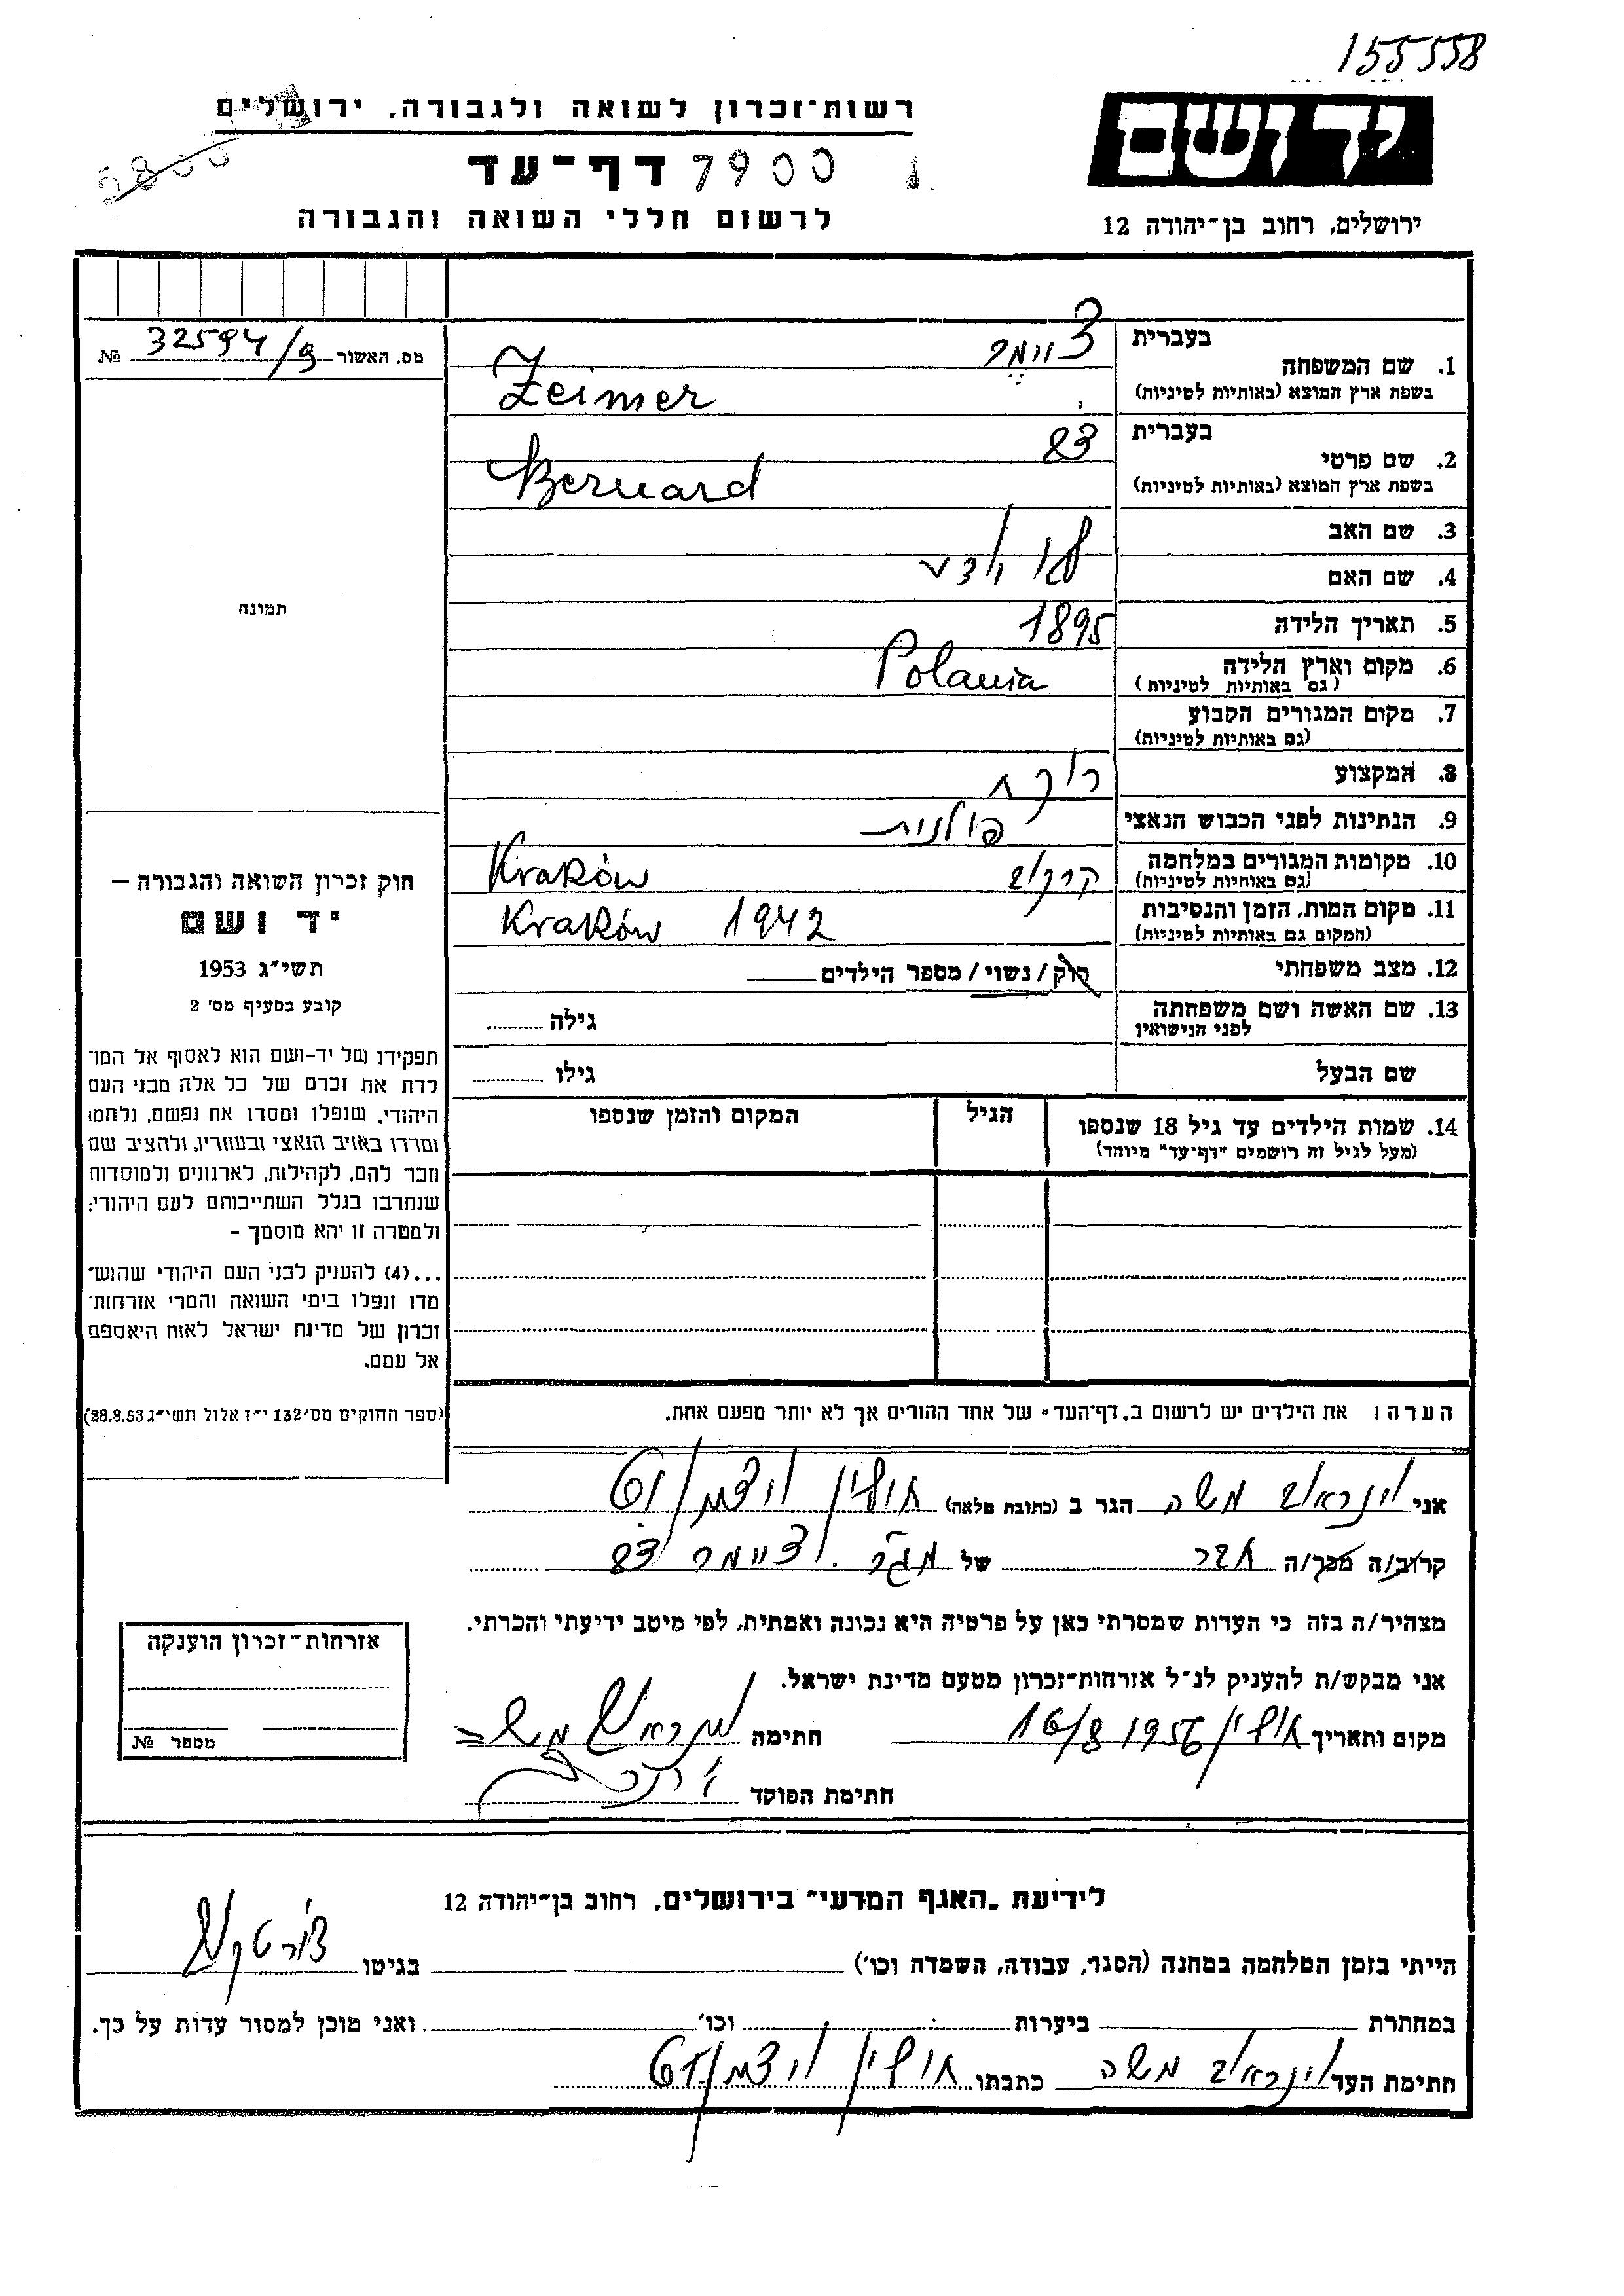 155558
רשות־זכרון לשואה ולגבורה, ירושלים
יד ושם
5800
דף־עד 7900
לרשום חללי השואה והגבורה
ירושלים, רחוב בן־יהודה 12
מס. האשור 32594/9 №
1. שם המשפחה בעברית ציימר
בשפת ארץ המוצא (באותיות לטיניות) Zeimer
2. שם פרטי בעברית דב
בשפת ארץ המוצא (באותיות לטיניות) Bernard
3. שם האב
4. שם האם לא ידוע
5. תאריך הלידה 1895
6. מקום וארץ הלידה Polania
(גם באותיות לטיניות)
7. מקום המגורים הקבוע
(גם באותיות לטיניות)
8. המקצוע רוקח
9. הנתינות לפני הכבוש הנאצי פולנית
10. מקומות המגורים במלחמה קרקוב Kraków
(גם באותיות לטיניות)
11. מקום המות, הזמן והנסיבות Kraków 1942
(המקום גם באותיות לטיניות)
12. מצב משפחתי רוק / נשוי / מספר הילדים
13. שם האשה ושם משפחתה גילה
לפני הנישואין
שם הבעל גילו
14. שמות הילדים עד גיל 18 שנספו הגיל המקום והזמן שנספו
(מעל לגיל זה רושמים "דף־עד" מיוחד)
הערה: את הילדים יש לרשום ב"דף־העד" של אחד ההורים אך לא יותר מפעם אחת.
תמונה
חוק זכרון השואה והגבורה –
יד ושם
תשי״ג 1953
קובע בסעיף מס׳ 2
תפקידו של יד-ושם הוא לאסוף אל המו־
לדת את זכרם של כל אלה מבני העם
היהודי, שנפלו ומסרו את נפשם, נלחמו
ומרדו באויב הנאצי ובעוזריו, ולהציב שם
וזכר להם, לקהילות, לארגונים ולמוסדות
שנחרבו בגלל השתייכותם לעם היהודי;
ולמטרה זו יהא מוסמך –
...(4) להעניק לבני העם היהודי שהוש־
מדו ונפלו בימי השואה והמרי אזרחות־
זכרון של מדינת ישראל לאות היאספם
אל עמם.
(ספר החוקים מס׳ 132 י״ז אלול תשי״ג 28.8.53)
אני משה הגר ב (כתובת מלאה) חולון
קרוב/ה מכר/ה חבר של ציימר דב
מצהיר/ה בזה כי העדות שמסרתי כאן על פרטיה היא נכונה ואמתית, לפי מיטב ידיעתי והכרתי.
אני מבקש/ת להעניק לנ״ל אזרחות־זכרון מטעם מדינת ישראל.
מקום ותאריך חולון 16/8 1956 חתימה משה
חתימת הפוקד
אזרחות־זכרון הוענקה
מספר №
לידיעת "האגף המדעי" בירושלים, רחוב בן־יהודה 12
הייתי בזמן המלחמה במחנה (הסגר, עבודה, השמדה וכו׳) בגיטו
במחתרת ביערות וכו׳ ואני מוכן למסור עדות על כך.
חתימת העד משה כתבתו חולון